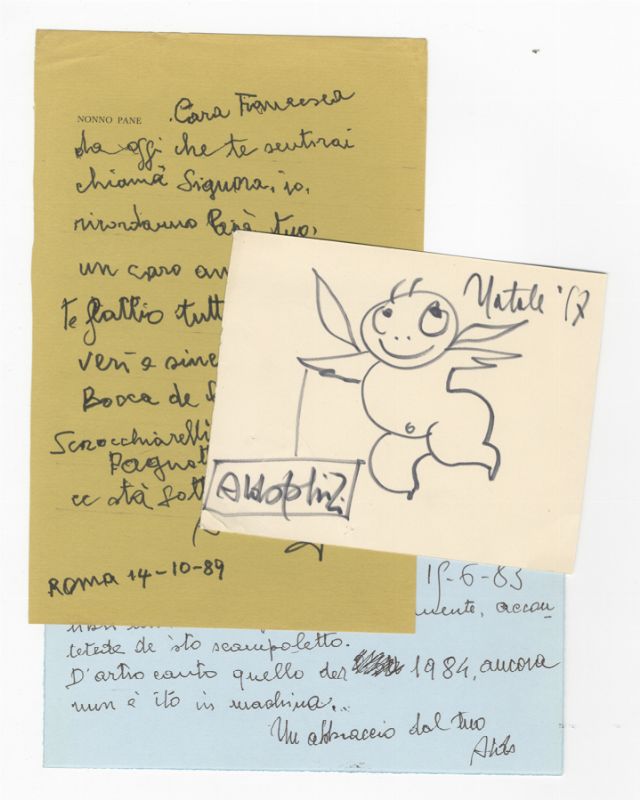 NONNO PANE
Cara Francesca
da oggi che te sentirai
chiamà Signora, io,
ricordanno Papà tuo,
un caro
te faccio
veri e
Bocca de
Scrocchiarelli
ce stà
ROMA 14-10-89
Natale '67
Aldo Fabrizi
15-6-83
accon
tetede de 'sto scampoletto.
D'artro canto quello der 1984, ancora
nun è ito in machina...
Un abbraccio dal tuo
Aldo